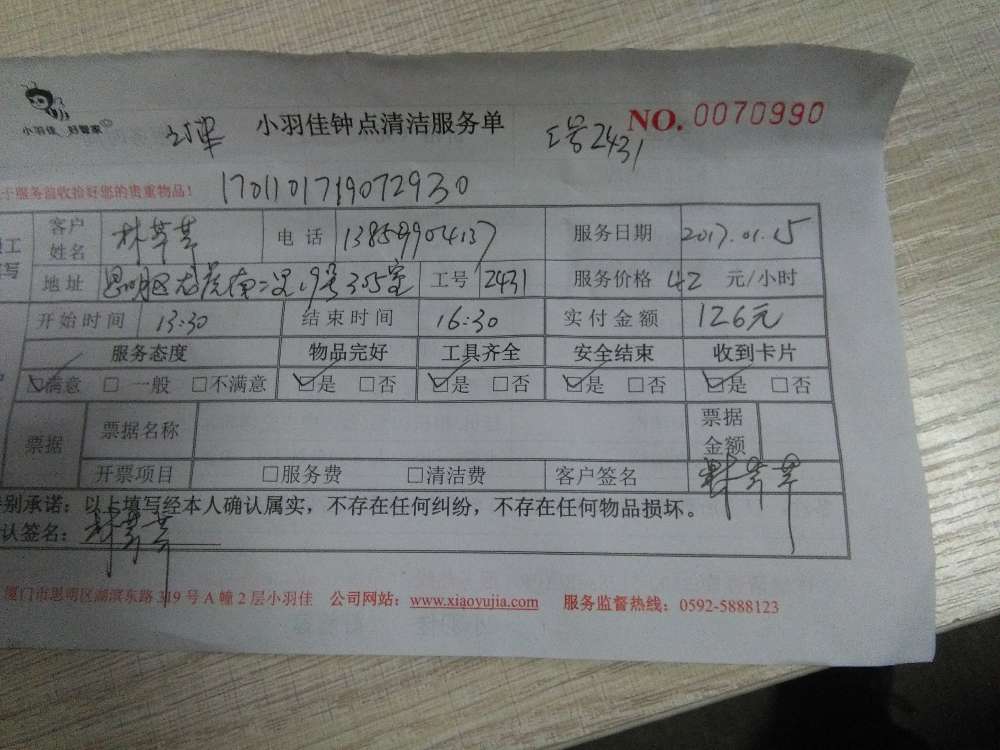 小羽佳 好管家
小羽佳钟点清洁服务单
工号2431
NO. 0070990
于服务前收拾好您的贵重物品!
1701101719072930
客户姓名 电话 13859904137 服务日期 2017.01.15
地址 思明区 305室 工号 2431 服务价格 42 元/小时
开始时间 13:30 结束时间 16:30 实付金额 126元
服务态度 物品完好 工具齐全 安全结束 收到卡片
☑满意 □一般 □不满意 ☑是 □否 ☑是 □否 ☑是 □否 ☑是 □否
票据 票据名称 票据金额
开票项目 □服务费 □清洁费 客户签名
别承诺:以上填写经本人确认属实,不存在任何纠纷,不存在任何物品损坏。
认签名:
厦门市思明区湖滨东路319号A幢2层小羽佳 公司网站:www.xiaoyujia.com 服务监督热线:0592-5888123